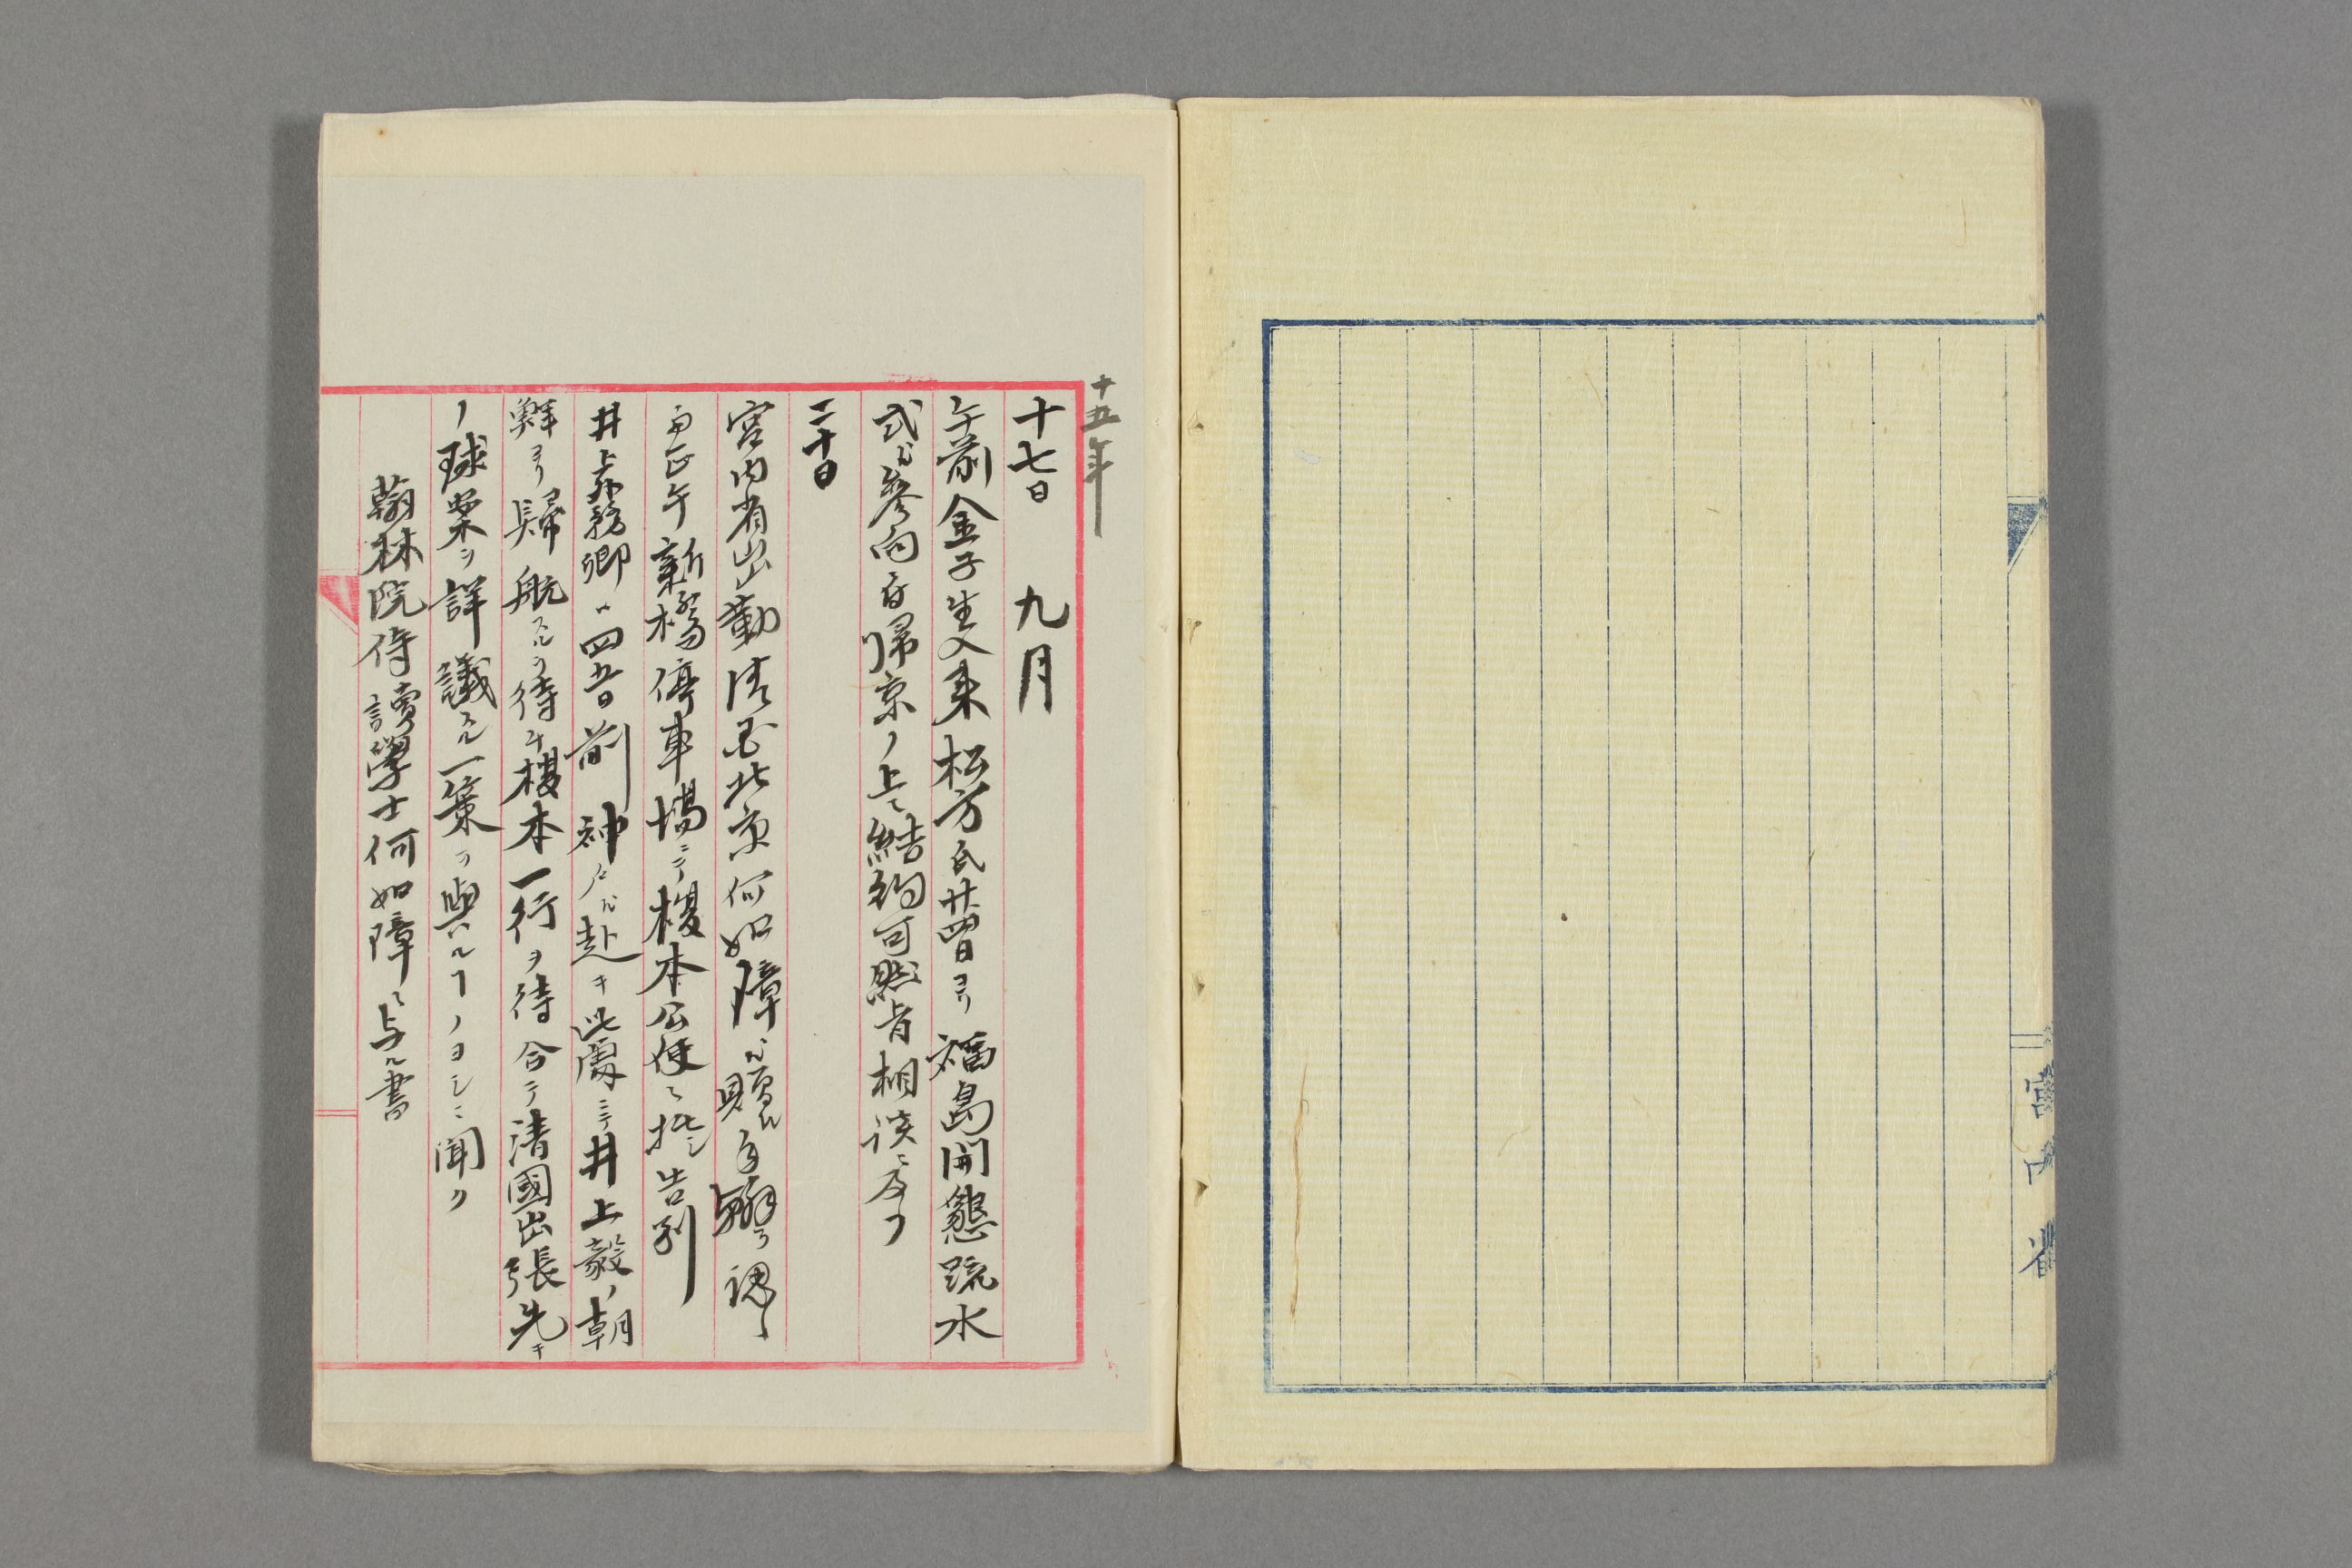 宮内省
十五年
十七日 九月
午前金子生入来松方氏廿四日ヨリ福島開墾疏水
式ヘ参向ニ付帰京ノ上ニ結約可然旨相談ニ及フ
二十日
宮内省出勤清国北京何如璋ヘ贈ル
正午新橋停車場ニテ榎本公使ニ抵シ告別
井上外務卿ハ四五日前神戸ヘ赴キ此處ニテ井上毅ノ朝
鮮ヨリ歸航スルヲ待チ榎本一行ヲ待合テ清國出張先キ
ノ球案ヲ詳議スル一策ヲ與ヘルヿノヨシニ聞ク
翰林院侍讀學士何如璋ニ与ル書